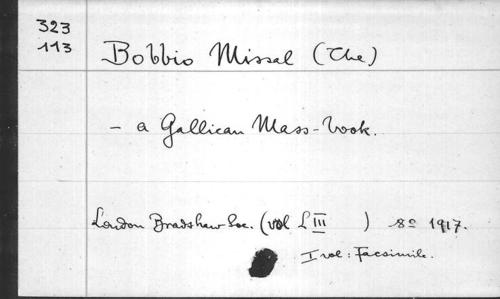 323
113
Bobbio Missal (The)
- a Gallican Mass-book.
London Bradshaw Soc. (vol LIII ) 8º 1917.
I vol: Facsimile.